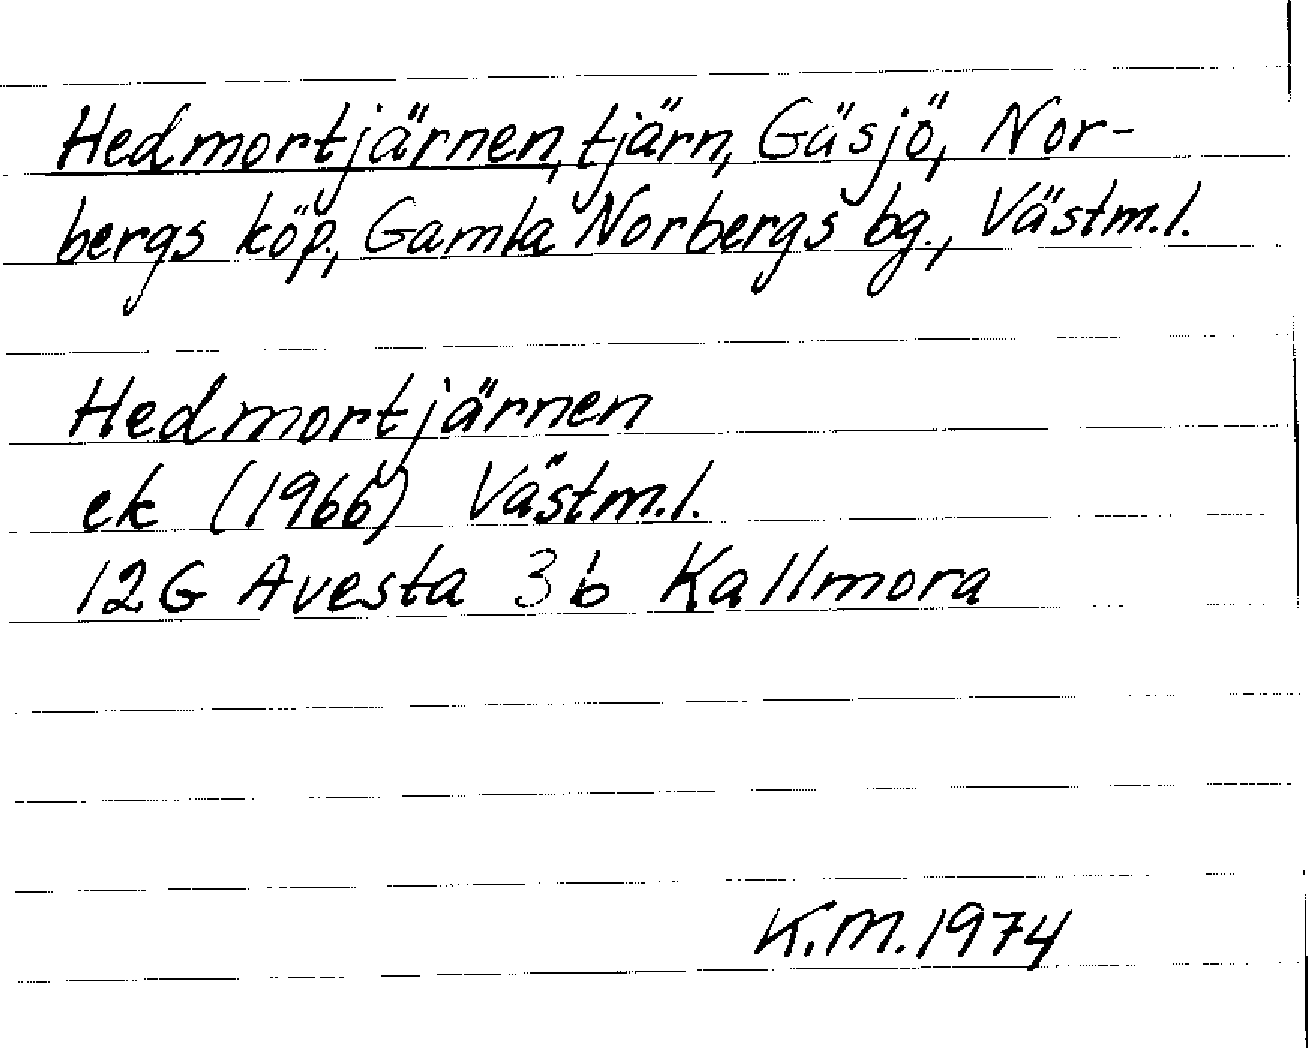 Hedmortjärnen, tjärn, Gäsjö, Nor-
bergs köp., Gamla Norbergs bg., Västm.l.
Hedmortjärnen
ek (1966) Västm.l.
12G Avesta 3b Kallmora
K.M.1974